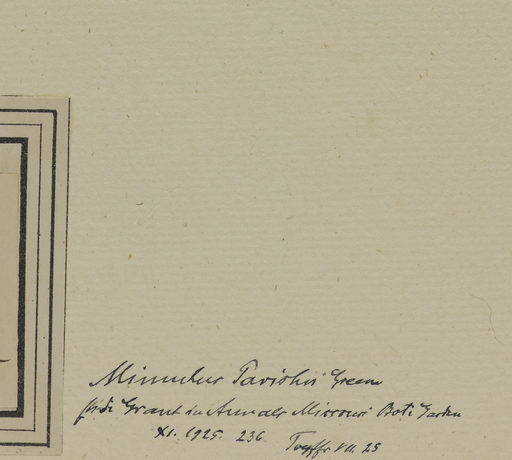 Mimulus Parishii Greene
fide Grant in Annals Missouri Bot. Garden
XI. 1925. 236
Toepffer VII. 25